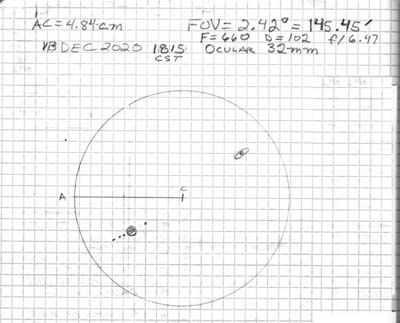 AC = 4.84 cm
FOV = 2.42° = 145.45'
F = 660 D = 102 f/6.47
13 DEC 2020 1815 CST
OCULAR 32mm
A
C